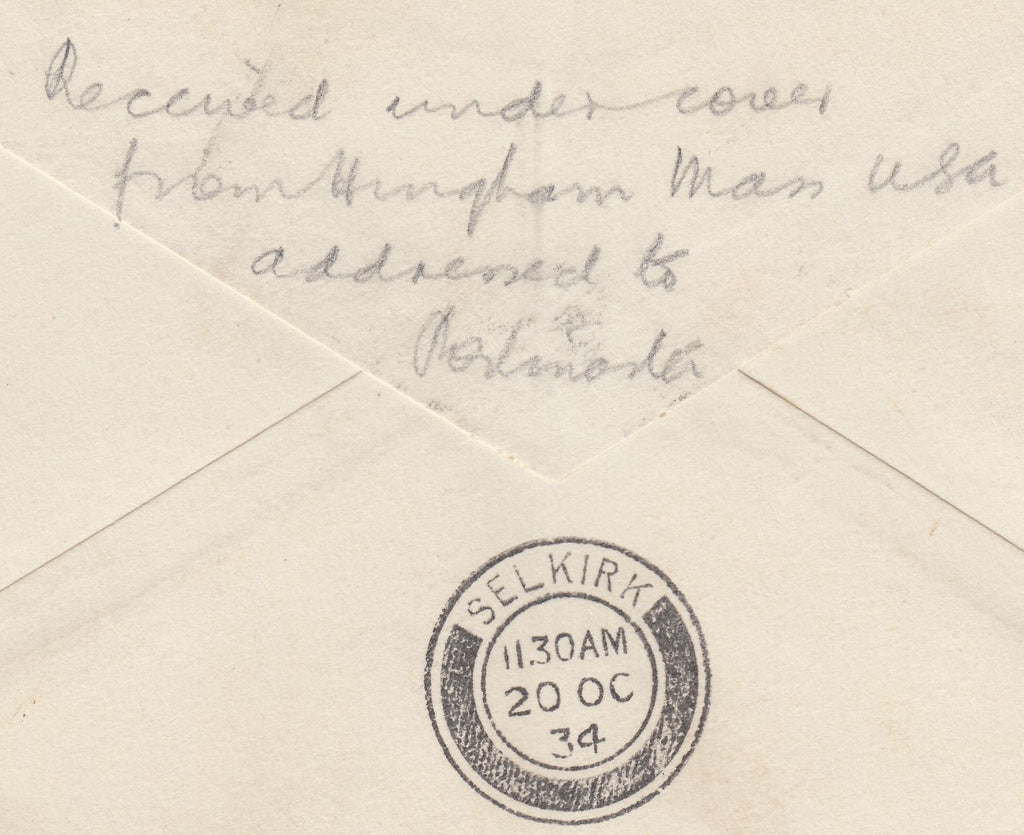 Received under cover
from Hingham Mass USA
addressed to
Postmaster
SELKIRK
11.30AM
20 OC
34